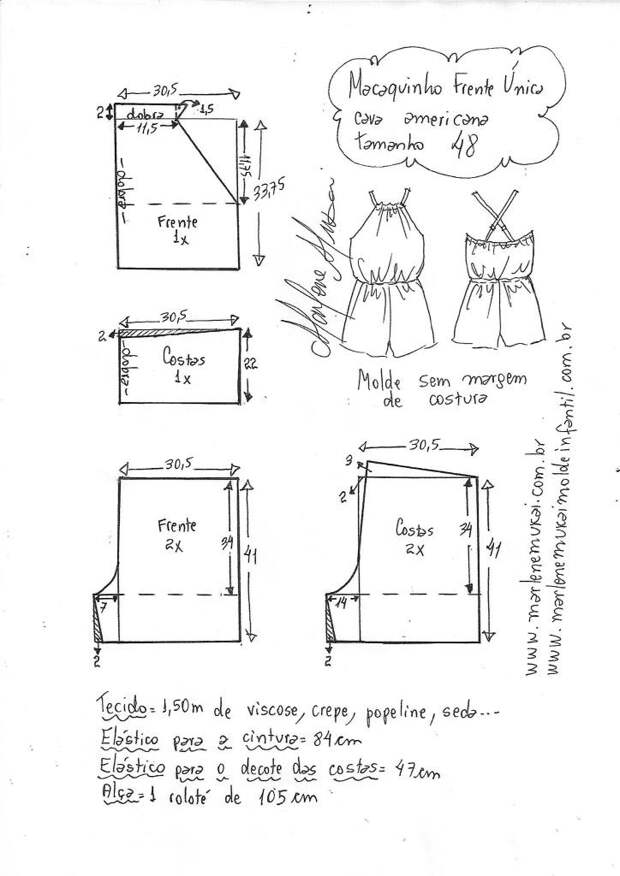 Macaquinho Frente Única
cava americana
tamanho 48
30,5
2
dobra
1,5
11,5
dobra
11,75
33,75
Frente
1x
Marlene Mukai
30,5
2
dobra
Costas
1x
22
Molde sem margem
de costura
30,5
Frente
2x
34
41
7
2
30,5
3
2
Costas
2x
34
41
14
2
www.marlenemukai.com.br
www.marlenemukaimoldeinfantil.com.br
Tecido = 1,50m de viscose, crepe, popeline, seda...
Elástico para a cintura = 84cm
Elástico para o decote das costas = 47cm
Alça = 1 roloté de 105 cm